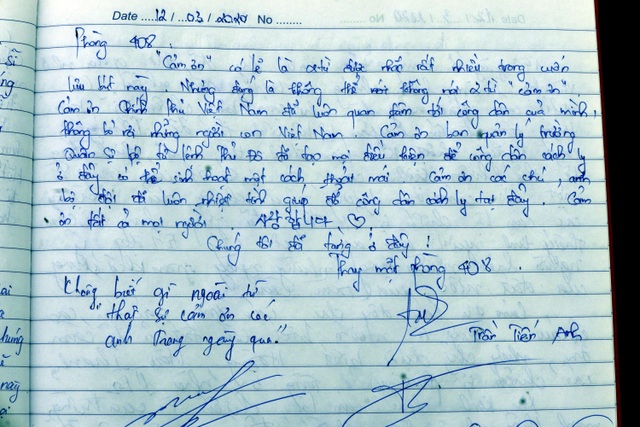 Date ....12 / ...03 / 2020 No ........
Phòng 408
"Cảm ơn" có lẽ là cụm từ được nhắc rất nhiều trong cuốn
lưu bút này. Nhưng đúng là không thể nói không nói 2 từ "cảm ơn".
Cảm ơn Chính Phủ Việt Nam đã luôn quan tâm tới công dân của mình,
không bỏ rơi những người con Việt Nam. Cảm ơn ban quản lý trường
Quân sự bộ tư lệnh Thủ Đô đã tạo mọi điều kiện để công dân cách ly
ở đây có thể sinh hoạt một cách thoải mái. Cảm ơn các chú, anh
bộ đội đã luôn nhiệt tình giúp đỡ công dân cách ly tại đây. Cảm
ơn tất cả mọi người. 사랑합니다 ♡
Chúng tôi đã từng ở đây!
Thay mặt phòng 408.
Không biết gì ngoài từ
"thật sự cảm ơn các
anh trong ngày qua."
Trần Tiến Anh
sĩ
ng
ai
hưng
này